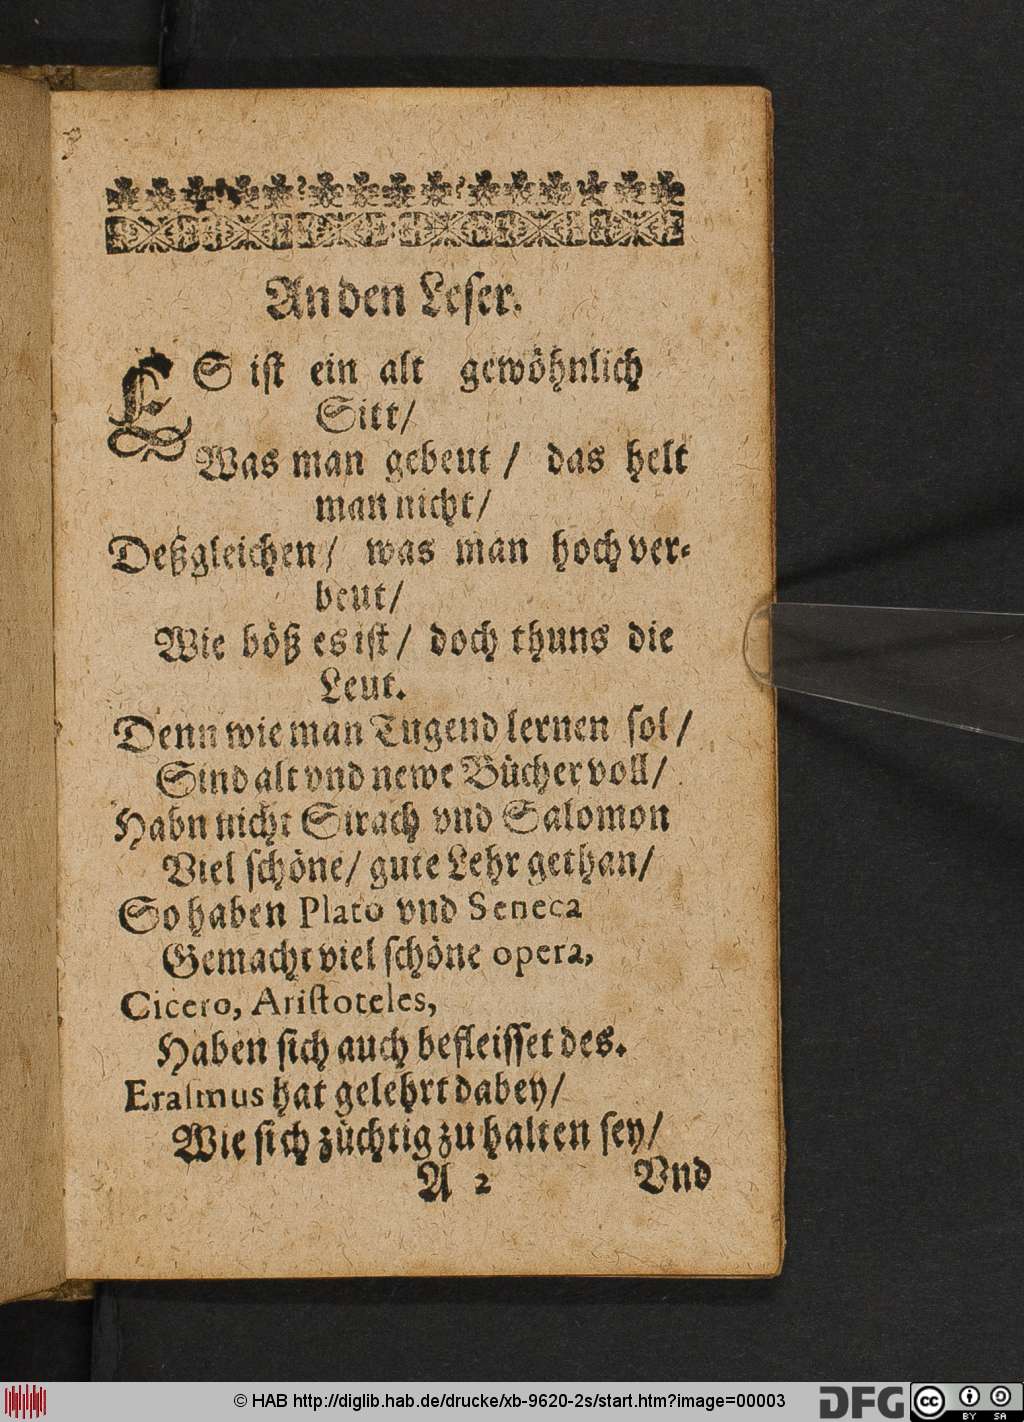 An den Leser.
ES ist ein alt gewöhnlich
Sitt/
Was man gebeut / das helt
man nicht/
Deßgleichen/ was man hoch ver-
beut/
Wie böß es ist/ doch thuns die
Leut.
Denn wie man Tugend lernen sol/
Sind alt vnd newe Bücher voll/
Habn nicht Sirach vnd Salomon
Viel schöne/ gute Lehr gethan/
So haben Plato vnd Seneca
Gemacht viel schöne opera,
Cicero, Aristoteles,
Haben sich auch befleisset des.
Erasmus hat gelehrt dabey/
Wie sich züchtig zu halten sey/
A 2 Vnd
© HAB http://diglib.hab.de/drucke/xb-9620-2s/start.htm?image=00003
DFG cc BY SA